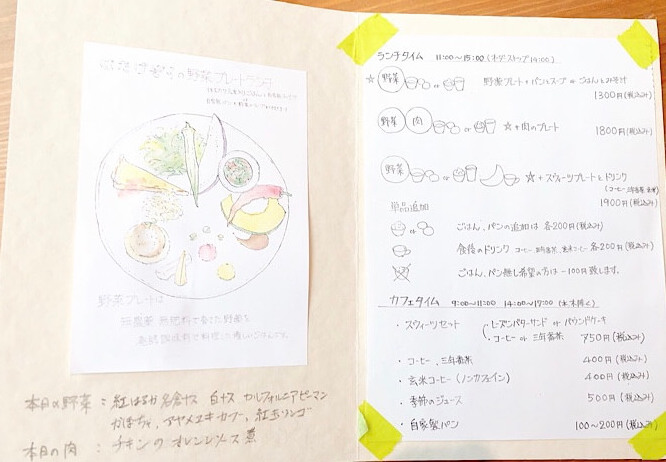 の野菜プレートランチ
野菜プレートは
無農薬 無肥料で育てた野菜を
本日の野菜 : 紅はるか 白ナス カルフォルニアピーマン
かぼちゃ、アヤメユキカブ、紅玉リンゴ
本日の肉 : チキンのオレンジソース煮
ランチタイム 11:00〜15:00 (オーダーストップ14:00)
☆ 野菜 or 野菜プレート+パンとスープ or ごはんとみそ汁
1300円(税込み)
野菜 肉 or ☆+肉のプレート 1800円(税込み)
野菜 or ☆+スウィーツプレートとドリンク
(コーヒー、三年番茶
1900円(税込み)
単品追加
or ごはん、パンの追加は 各200円(税込み)
食後のドリンク コーヒー、三年番茶、玄米コーヒー 各200円(税込み)
ごはん、パン無し希望の方は -100円致します。
カフェタイム 9:00〜11:00 14:00〜17:00
・スウィーツセット レーズンバターサンド or パウンドケーキ
・コーヒー or 三年番茶 750円(税込み)
・コーヒー、三年番茶 400円(税込み)
・玄米コーヒー(ノンカフェイン) 400円(税込み)
・季節のジュース 500円(税込み)
・自家製パン 100〜200円(税込み)